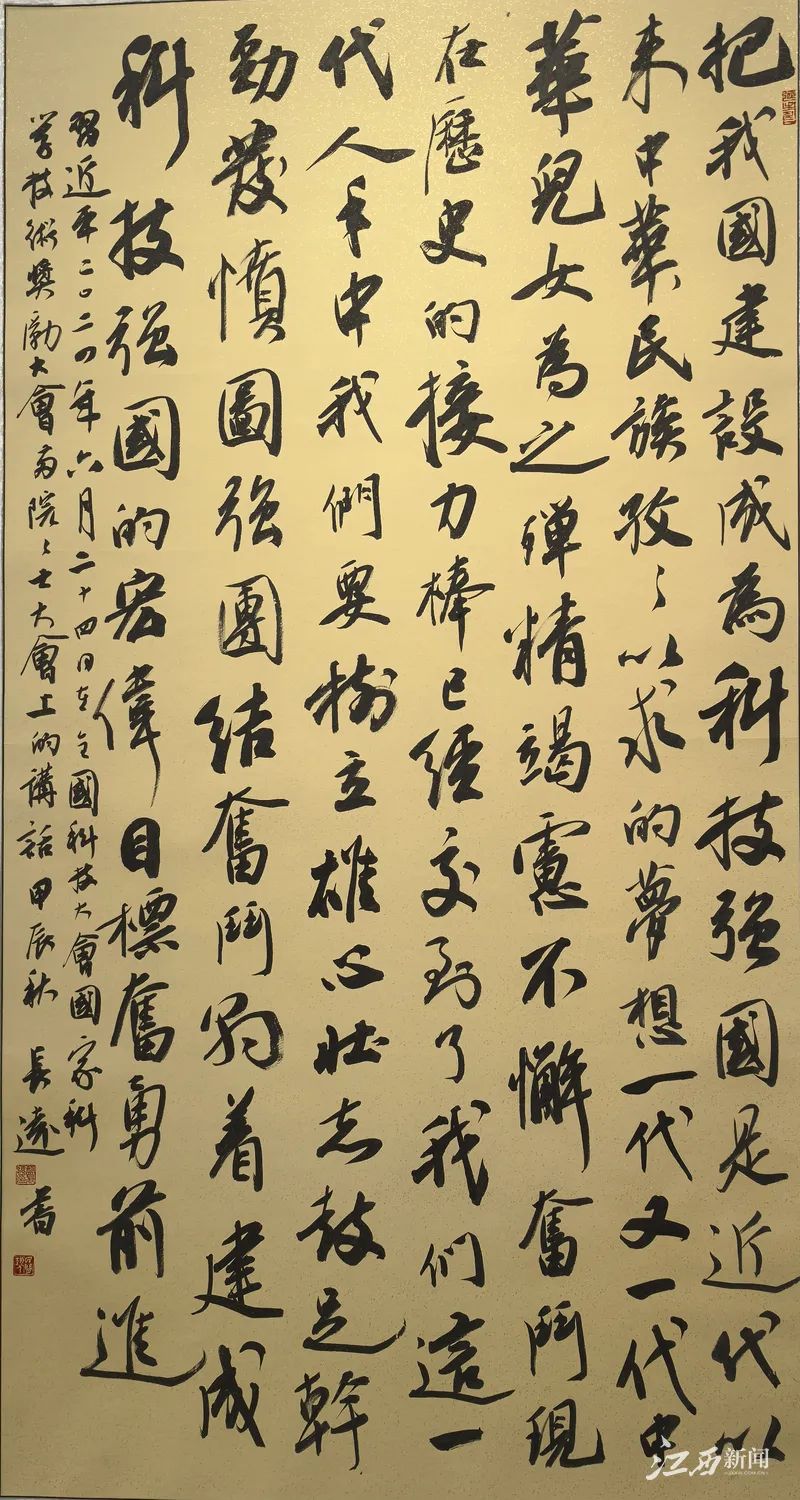 把我國建設成為科技强國是近代以
来中華民族孜々以求的夢想一代又一代中
華兒女為之殫精竭慮不懈奮鬥現
在歷史的接力棒已經交到了我們這一
代人手中我們要樹立雄心壮志鼓足幹
勁發憤圖强團结奮鬥朝着建成
科技强國的宏偉目標奮勇前進
習近平二〇二四年六月二十四日在全國科技大會國家科
学技術奬勵大會两院々士大會上的講話甲辰秋 長遠書
江西新闻